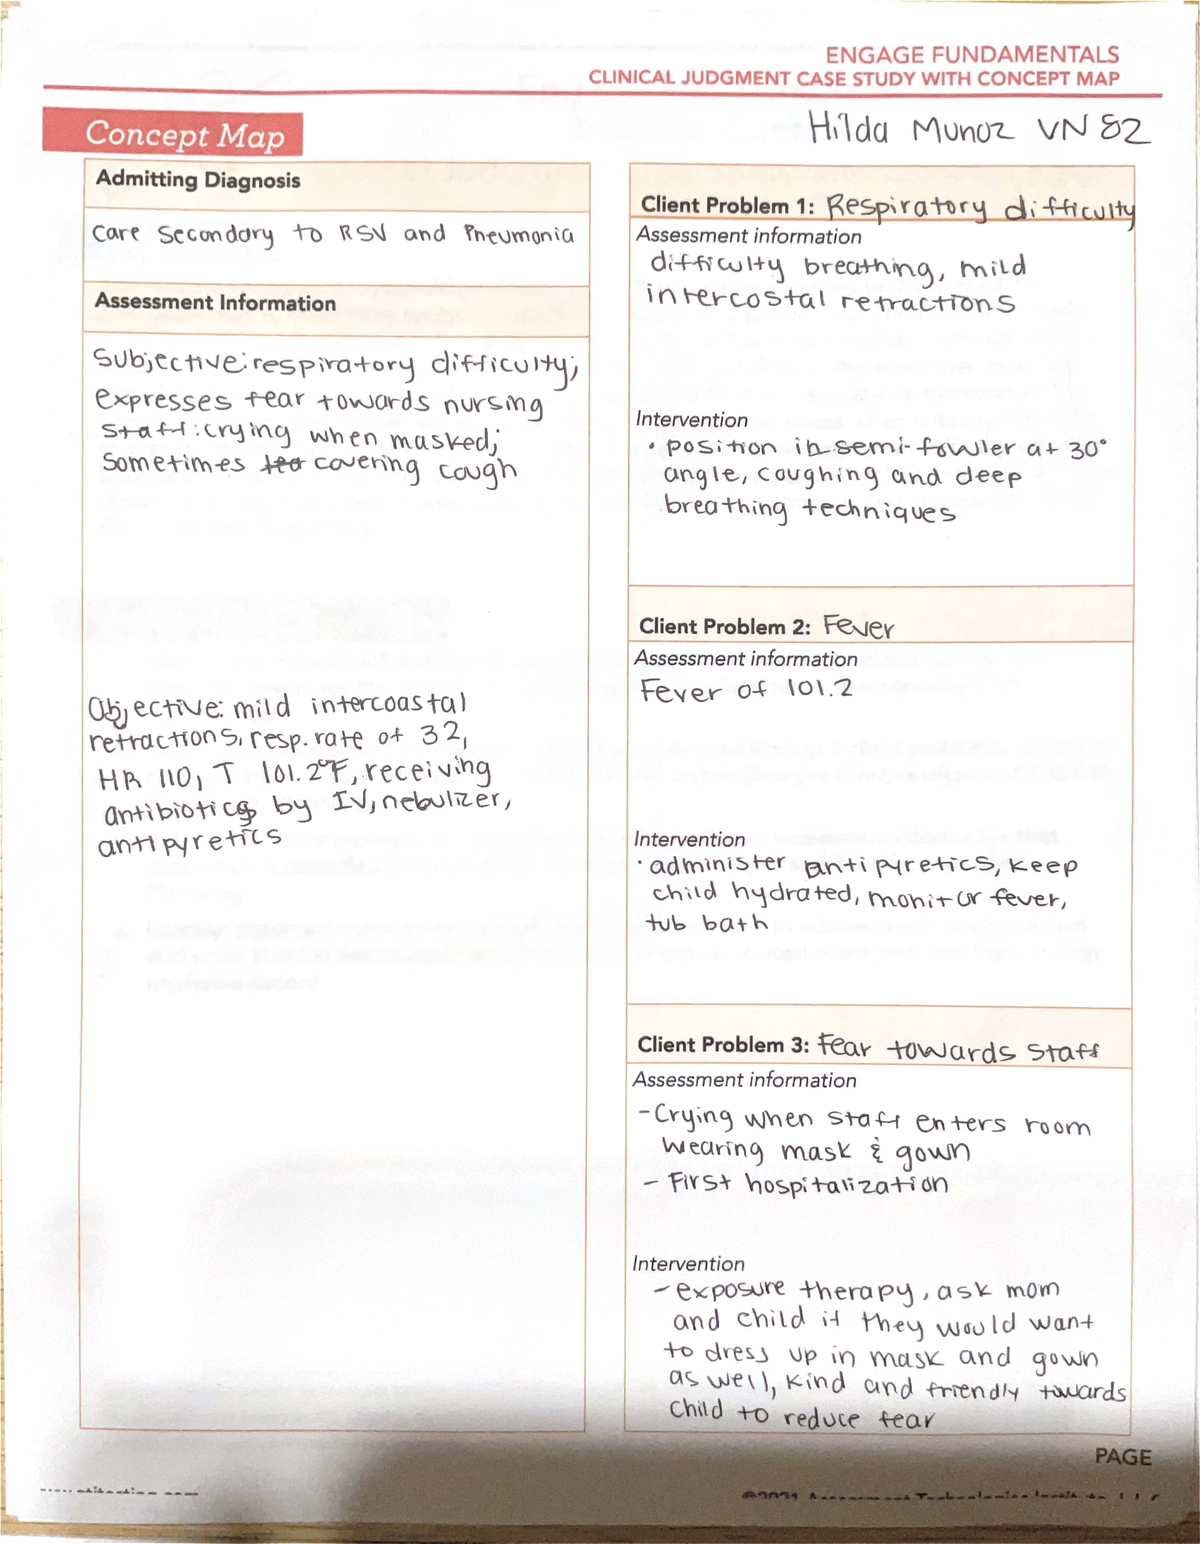 ENGAGE FUNDAMENTALS
CLINICAL JUDGMENT CASE STUDY WITH CONCEPT MAP
Concept Map
Hilda Munoz VN 82
Admitting Diagnosis
Care Secondary to RSV and Pneumonia
Assessment Information
Subjective: respiratory difficulty;
expresses fear towards nursing
staff: crying when masked;
sometimes covering cough
Objective: mild intercoastal
retractions, resp. rate of 32,
HR 110, T 101.2°F, receiving
antibiotics by IV, nebulizer,
antipyretics
Client Problem 1: Respiratory difficulty
Assessment information
difficulty breathing, mild
intercostal retractions
Intervention
• position in semi-fowler at 30°
angle, coughing and deep
breathing techniques
Client Problem 2: Fever
Assessment information
Fever of 101.2
Intervention
• administer antipyretics, keep
child hydrated, monitor fever,
tub bath
Client Problem 3: Fear towards staff
Assessment information
- Crying when staff enters room
wearing mask & gown
- First hospitalization
Intervention
- exposure therapy, ask mom
and child if they would want
to dress up in mask and gown
as well, kind and friendly towards
child to reduce fear
PAGE